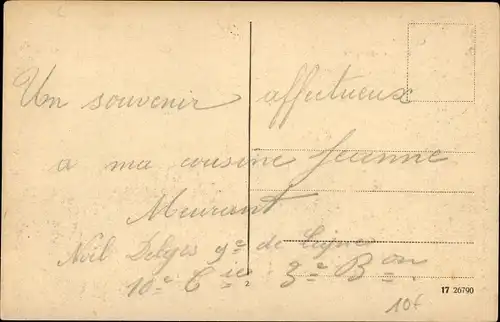 Un souvenir affectueux
a ma cousine Jeanne
Meurant
Noël 9e de Ligne
10e Cie 3e Bon
2
17 26790
10f